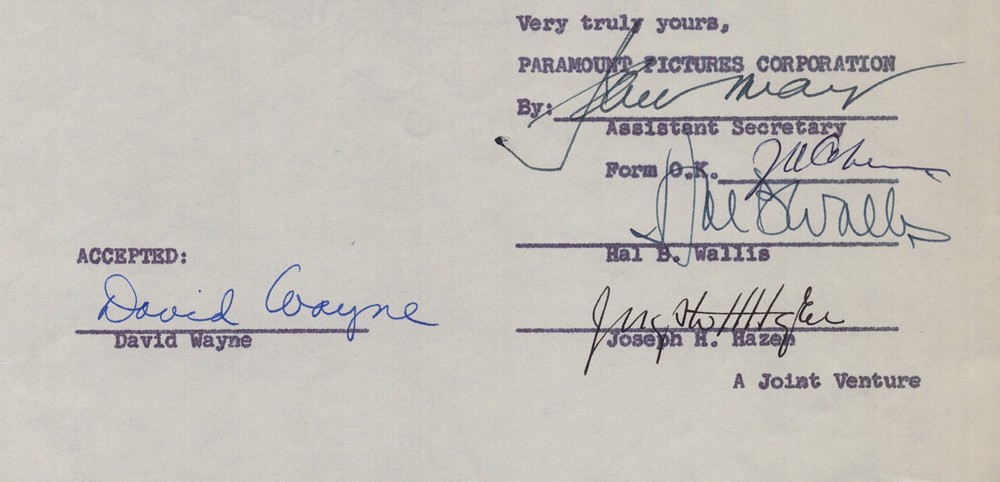 Very truly yours,
PARAMOUNT PICTURES CORPORATION
By:
Assistant Secretary
Form O.K.
Hal B Wallis
Hal B. Wallis
ACCEPTED:
David Wayne
David Wayne
Joseph H. Hazen
A Joint Venture